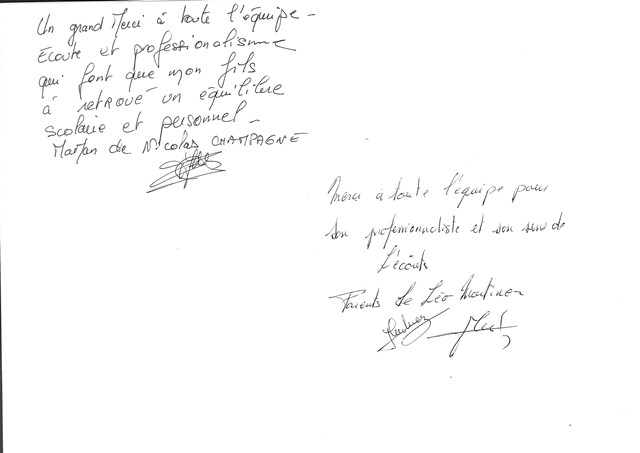 Un grand Merci à toute l'équipe -
Ecoute et professionalisme
qui font que mon fils
à retrouvé un équilibre
scolaire et personnel -
Maman de Nicolas CHAMPAGNE
Merci à toute l'équipe pour
son professionnaliste et son sens de
l'écoute
Parents de Léo Martinez